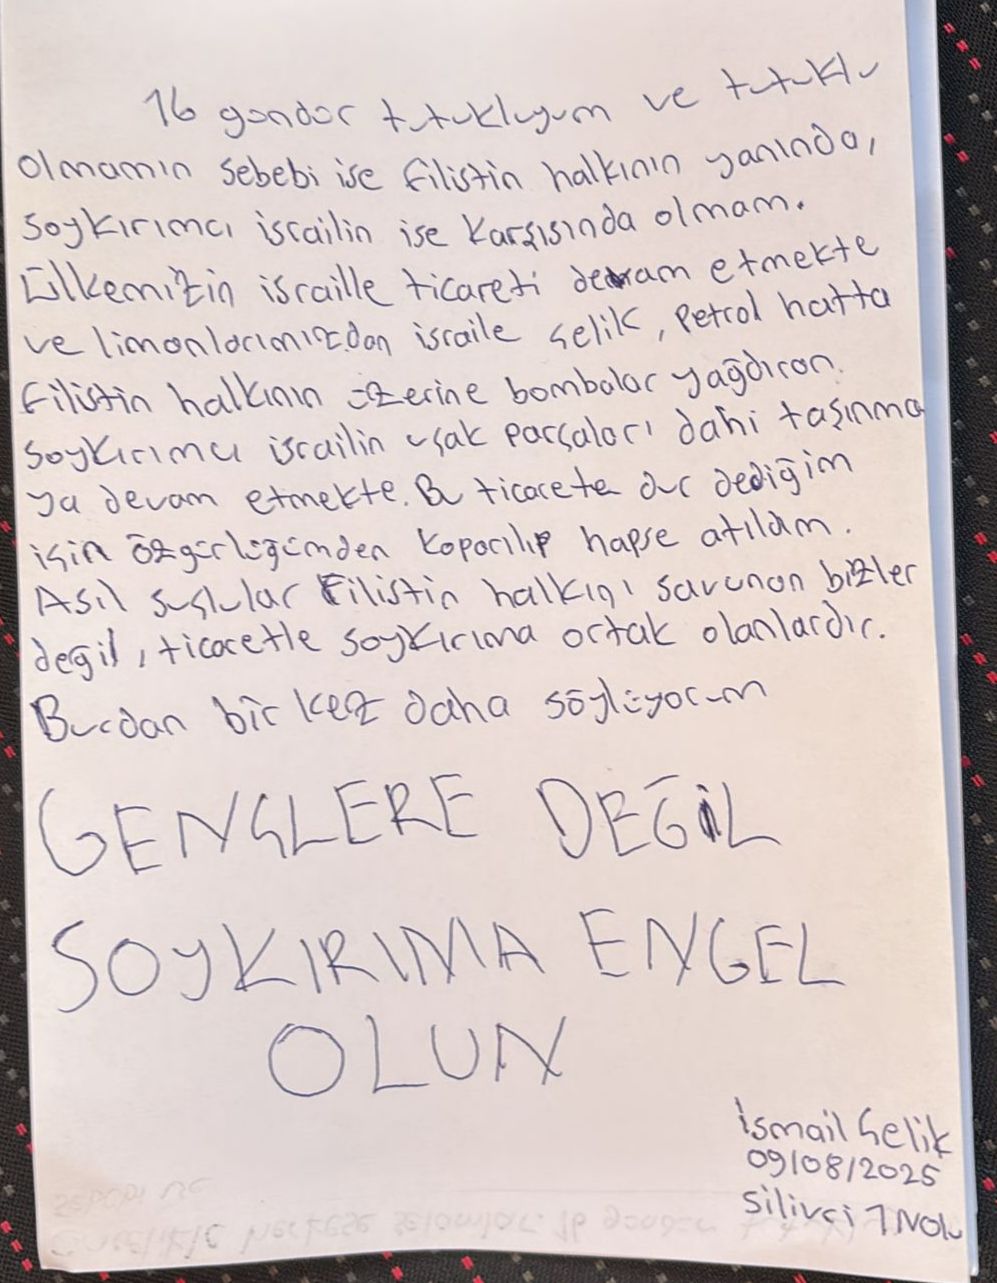 16 gündür tutukluyum ve tutuklu
olmamın sebebi ise filistin halkının yanında,
soykırımcı israilin ise karşısında olmam.
Ülkemizin israille ticareti devam etmekte
ve limanlarımızdan israile çelik, petrol hatta
filistin halkının üzerine bombalar yağdıran
soykırımcı israilin uçak parçaları dahi taşınma
ya devam etmekte. Bu ticarete dur dediğim
için özgürlüğümden koparılıp hapse atıldım.
Asıl suçlular Filistin halkını savunan bizler
değil, ticaretle soykırıma ortak olanlardır.
Burdan bir kez daha söylüyorum
GENÇLERE DEĞİL
SOYKIRIMA ENGEL
OLUN
İsmail Çelik
09/08/2025
Silivri 7 Nolu